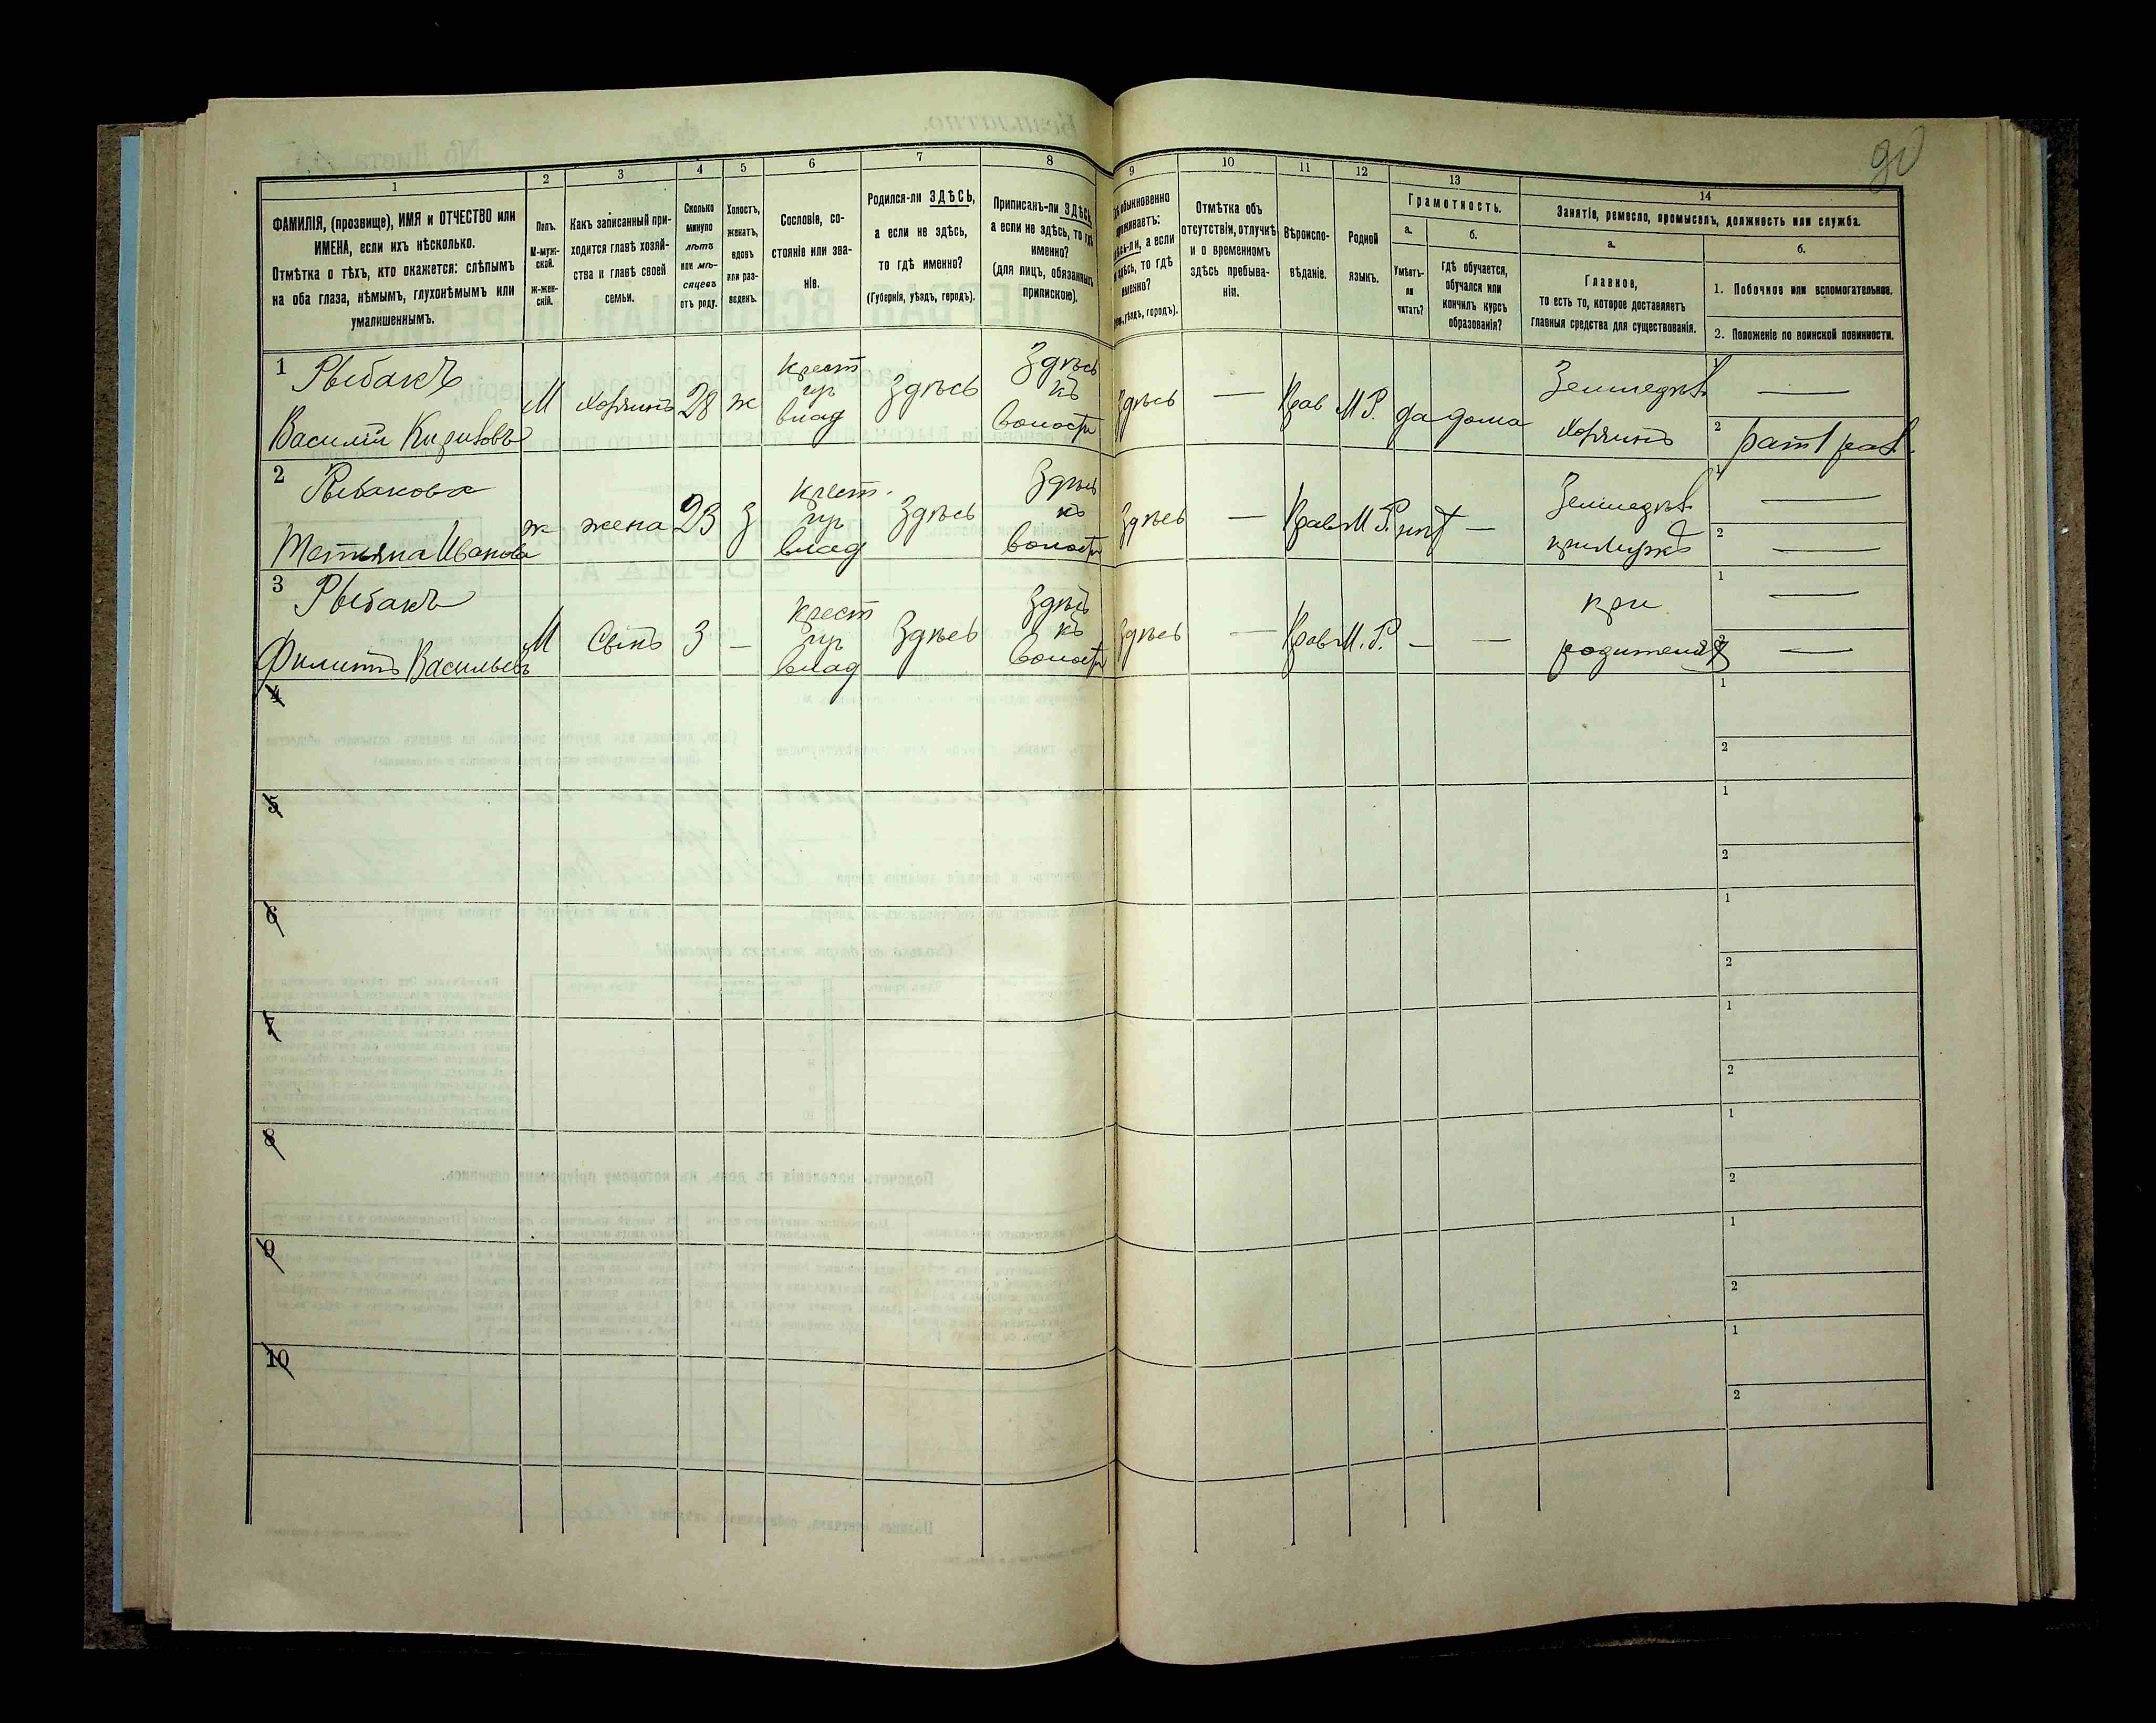 90
1
2
3
4
5
6
7
8
9
10
11
12
13
14
ФАМИЛІЯ, (прозвище), ИМЯ и ОТЧЕСТВО или
ИМЕНА, если ихъ нѣсколько.
Отмѣтка о тѣхъ, кто окажется: слѣпымъ
на оба глаза, нѣмымъ, глухонѣмымъ или
умалишеннымъ.
Полъ.
М-муж-
ской.
ж-жен-
скій.
Какъ записанный при-
ходится главѣ хозяй-
ства и главѣ своей
семьи.
Сколько
минуло
лѣтъ
или мѣ-
сяцевъ
отъ роду.
Холостъ,
женатъ,
вдовъ
или раз-
веденъ.
Сословіе, со-
стояніе или зва-
ніе.
Родился-ли ЗДѢСЬ,
а если не здѣсь,
то гдѣ именно?
(Губернія, уѣздъ, городъ).
Приписанъ-ли ЗДѢСЬ
а если не здѣсь, то гдѣ
именно?
(для лицъ, обязанныхъ
припискою).
обыкновенно
проживаетъ:
а если
то гдѣ
именно?
уѣздъ, городъ).
Отмѣтка объ
отсутствіи, отлучкѣ
и о временномъ
здѣсь пребыва-
ніи.
Вѣроиспо-
вѣданіе.
Родной
языкъ.
Грамотность.
а.
Умѣетъ-
ли
читать?
б.
гдѣ обучается,
обучался или
кончилъ курсъ
образованія?
Занятіе, ремесло, промыселъ, должность или служба.
а.
Главное,
то есть то, которое доставляетъ
главныя средства для существованія.
б.
1. Побочное или вспомогательное.
2. Положеніе по воинской повинности.
1 Рыбакъ
Василій
М хозяинъ 28 ж
крест
влад
Здѣсь
Здѣсь
къ
волости
Здѣсь — Прав М.Р. да дома
Земледѣл.
хозяинъ
1 —
2
2 Рыбакова
Татьяна Иванова
ж жена 23 З
крест.
влад
Здѣсь
Здѣсь
къ
волости
Здѣсь — Прав М.Р. нѣт —
Земледѣл.
1 —
2 —
3 Рыбакъ
Филиппъ Васильевъ
М Сынъ 3 —
крест
влад
Здѣсь
Здѣсь
къ
волости
Здѣсь — Прав М.Р. — —
при
родителяхъ
1 —
2 —
4
1
2
5
1
2
6
1
2
7
1
2
8
1
2
9
1
2
10
1
2